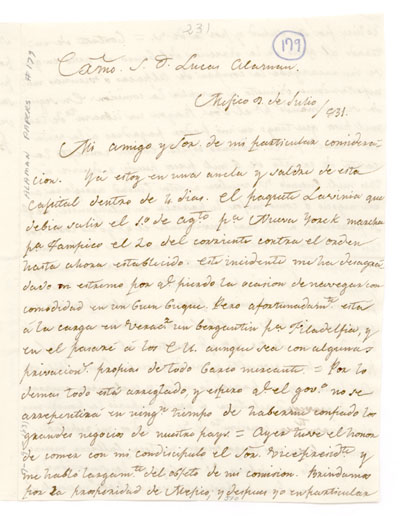 231
179
ALAMAN PAPERS #179
S. D. Lucas Alaman.
Mejico 2 de Julio
/831.
Mi amigo y Sor. de mi particular considera-
cion. Yá estoy en una ancla y saldré de esta
Capital dentro de 4 dias. El paquete Lavinia que
debia salir el 1.o de Agto. pa. Nueva Yorck marcha
pa. Tampico el 20 del corriente contra el orden
hasta ahora establecido. Este incidente me ha desagra-
dado en estremo por qe. pierdo la ocasion de navegar con
comodidad en un buen buque. Pero afortunadamte. está
á la carga en Veracz. un bergantin pa. Filadelfia, y
en el pasaré á los E. U. aunque sea con algunas
privacions. propias de todo barco mercante. = Por lo
demas todo está arreglado, y espero qe. el gove. no se
arrepentirá en ningn. tiempo de haberme confiado los
grandes negocios de nuestro pays. = Ayer tuve el honor
de comer con mi condiscipulo el Sor. Vicepresidte. y
me habló largamte. del objeto de mi comision. Brindamos
por la prosperidad de Mejico, y despues yo en particular